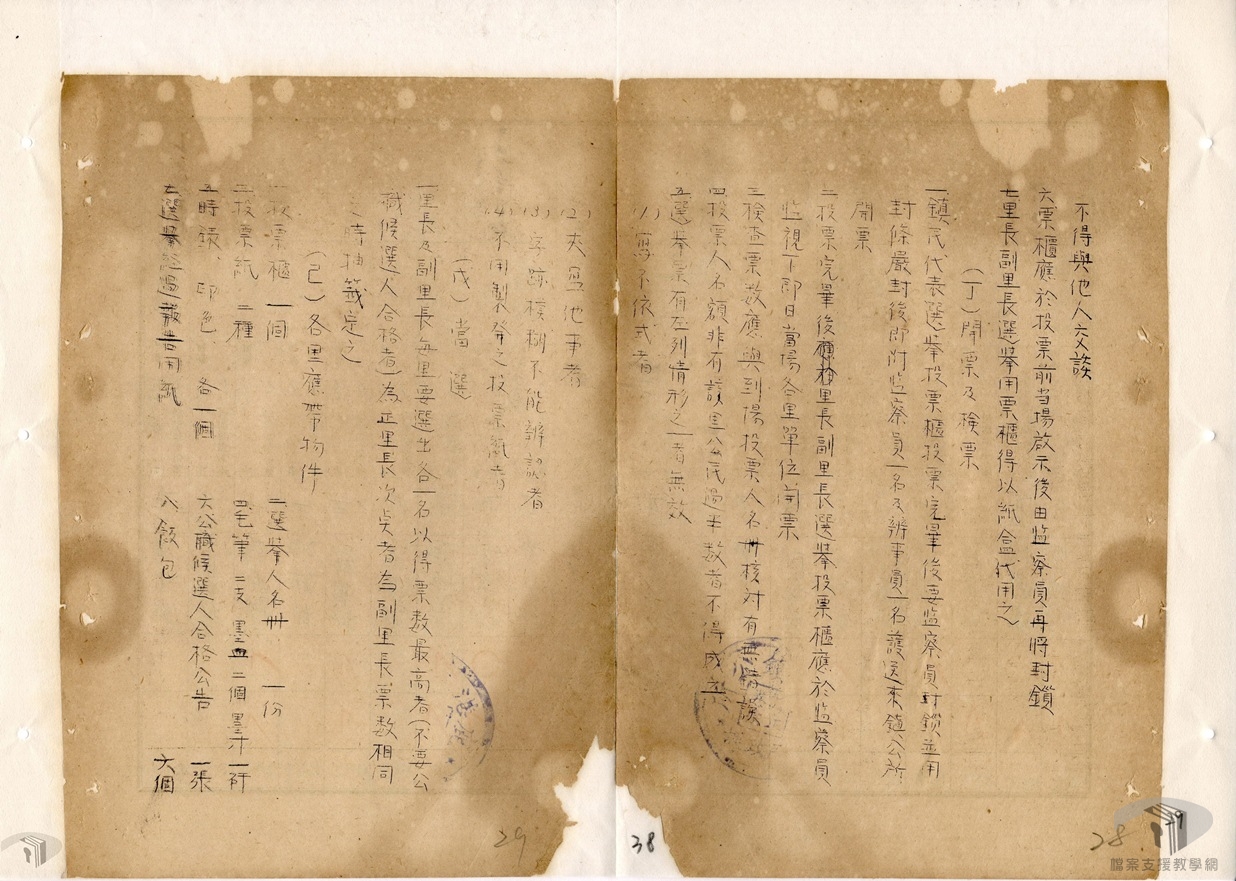 不得與他人交談
六票櫃應於投票前当場啟示後由监察員再將封鎖
七里長副里長選舉用票櫃得以紙盒代用之
(丁)開票及檢票
一鎮民代表選舉投票櫃投票完畢後要监察員封鎖並用
封條嚴封後即附监察員一名及辨事員一名護送來鎮公所
開票
二投票完畢後里長副里長選舉投票櫃應於监察員
监視下即日當場各里單位開票
三檢查票数應與到場投票人名冊核对有無錯誤
四投票人名額非有該里公民過半数者不得成立
五選舉票有左列情形之一者無效
(1)寫不依式者
(2)夾寫他事者
(3)字跡模糊不能辨認者
(4)不用製發之投票紙者
(戊)當選
一里長及副里長每里要選出各一名以得票数最高者(不要公
職候選人合格者)為正里長次奌者為副里長票数相同
之時抽籤定之
(已)各里應帶物件
一投票櫃 一個 二選舉人名冊 一份
三投票紙 二種 四毛筆 二支 墨皿 二個 墨汁 一矸
五時錶、印色 各一個 六公職候選人合格公告 一張
七選舉經過報告用紙 八飯包 六個
29
38
28
檔案支援教學網